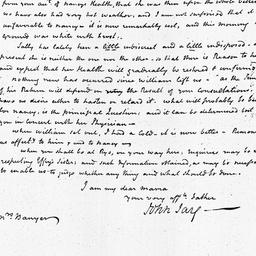 from your acc.t of Nancys Health, that she was then upon the whole better
we have also had very hot weather, and I am not surprised that it
unfavorable to nancy = it is now remarkably cool, and this morning
ground was white with frost.
Sally has lately been a little indiscreet and a little indisposed = at
present she is neither the one nor the other. so that there is Reason to hope
and expect that her Health will gradually be restored & confirmed
nothing new has occurred since William left us = "as the Time
of his Return will depend on the Result of your Consultations"
have no desire either to hasten or retard it. what will probably be best
for nancy, is the principal Question; and it can be determined only by
you in concert with her Physician =
when william set out, I had a cold. it is now better = Remember
us affect.y to him & and to nancy =
when you shall be at Rye, on your way here; inquiries may be made
respecting Effys Sister; and such Information obtained, as may be necessary
to enable us to judge whether any thing and what should be done.
I am my dear Maria
your very aff.te Father
John Jay
Mrs Banyer